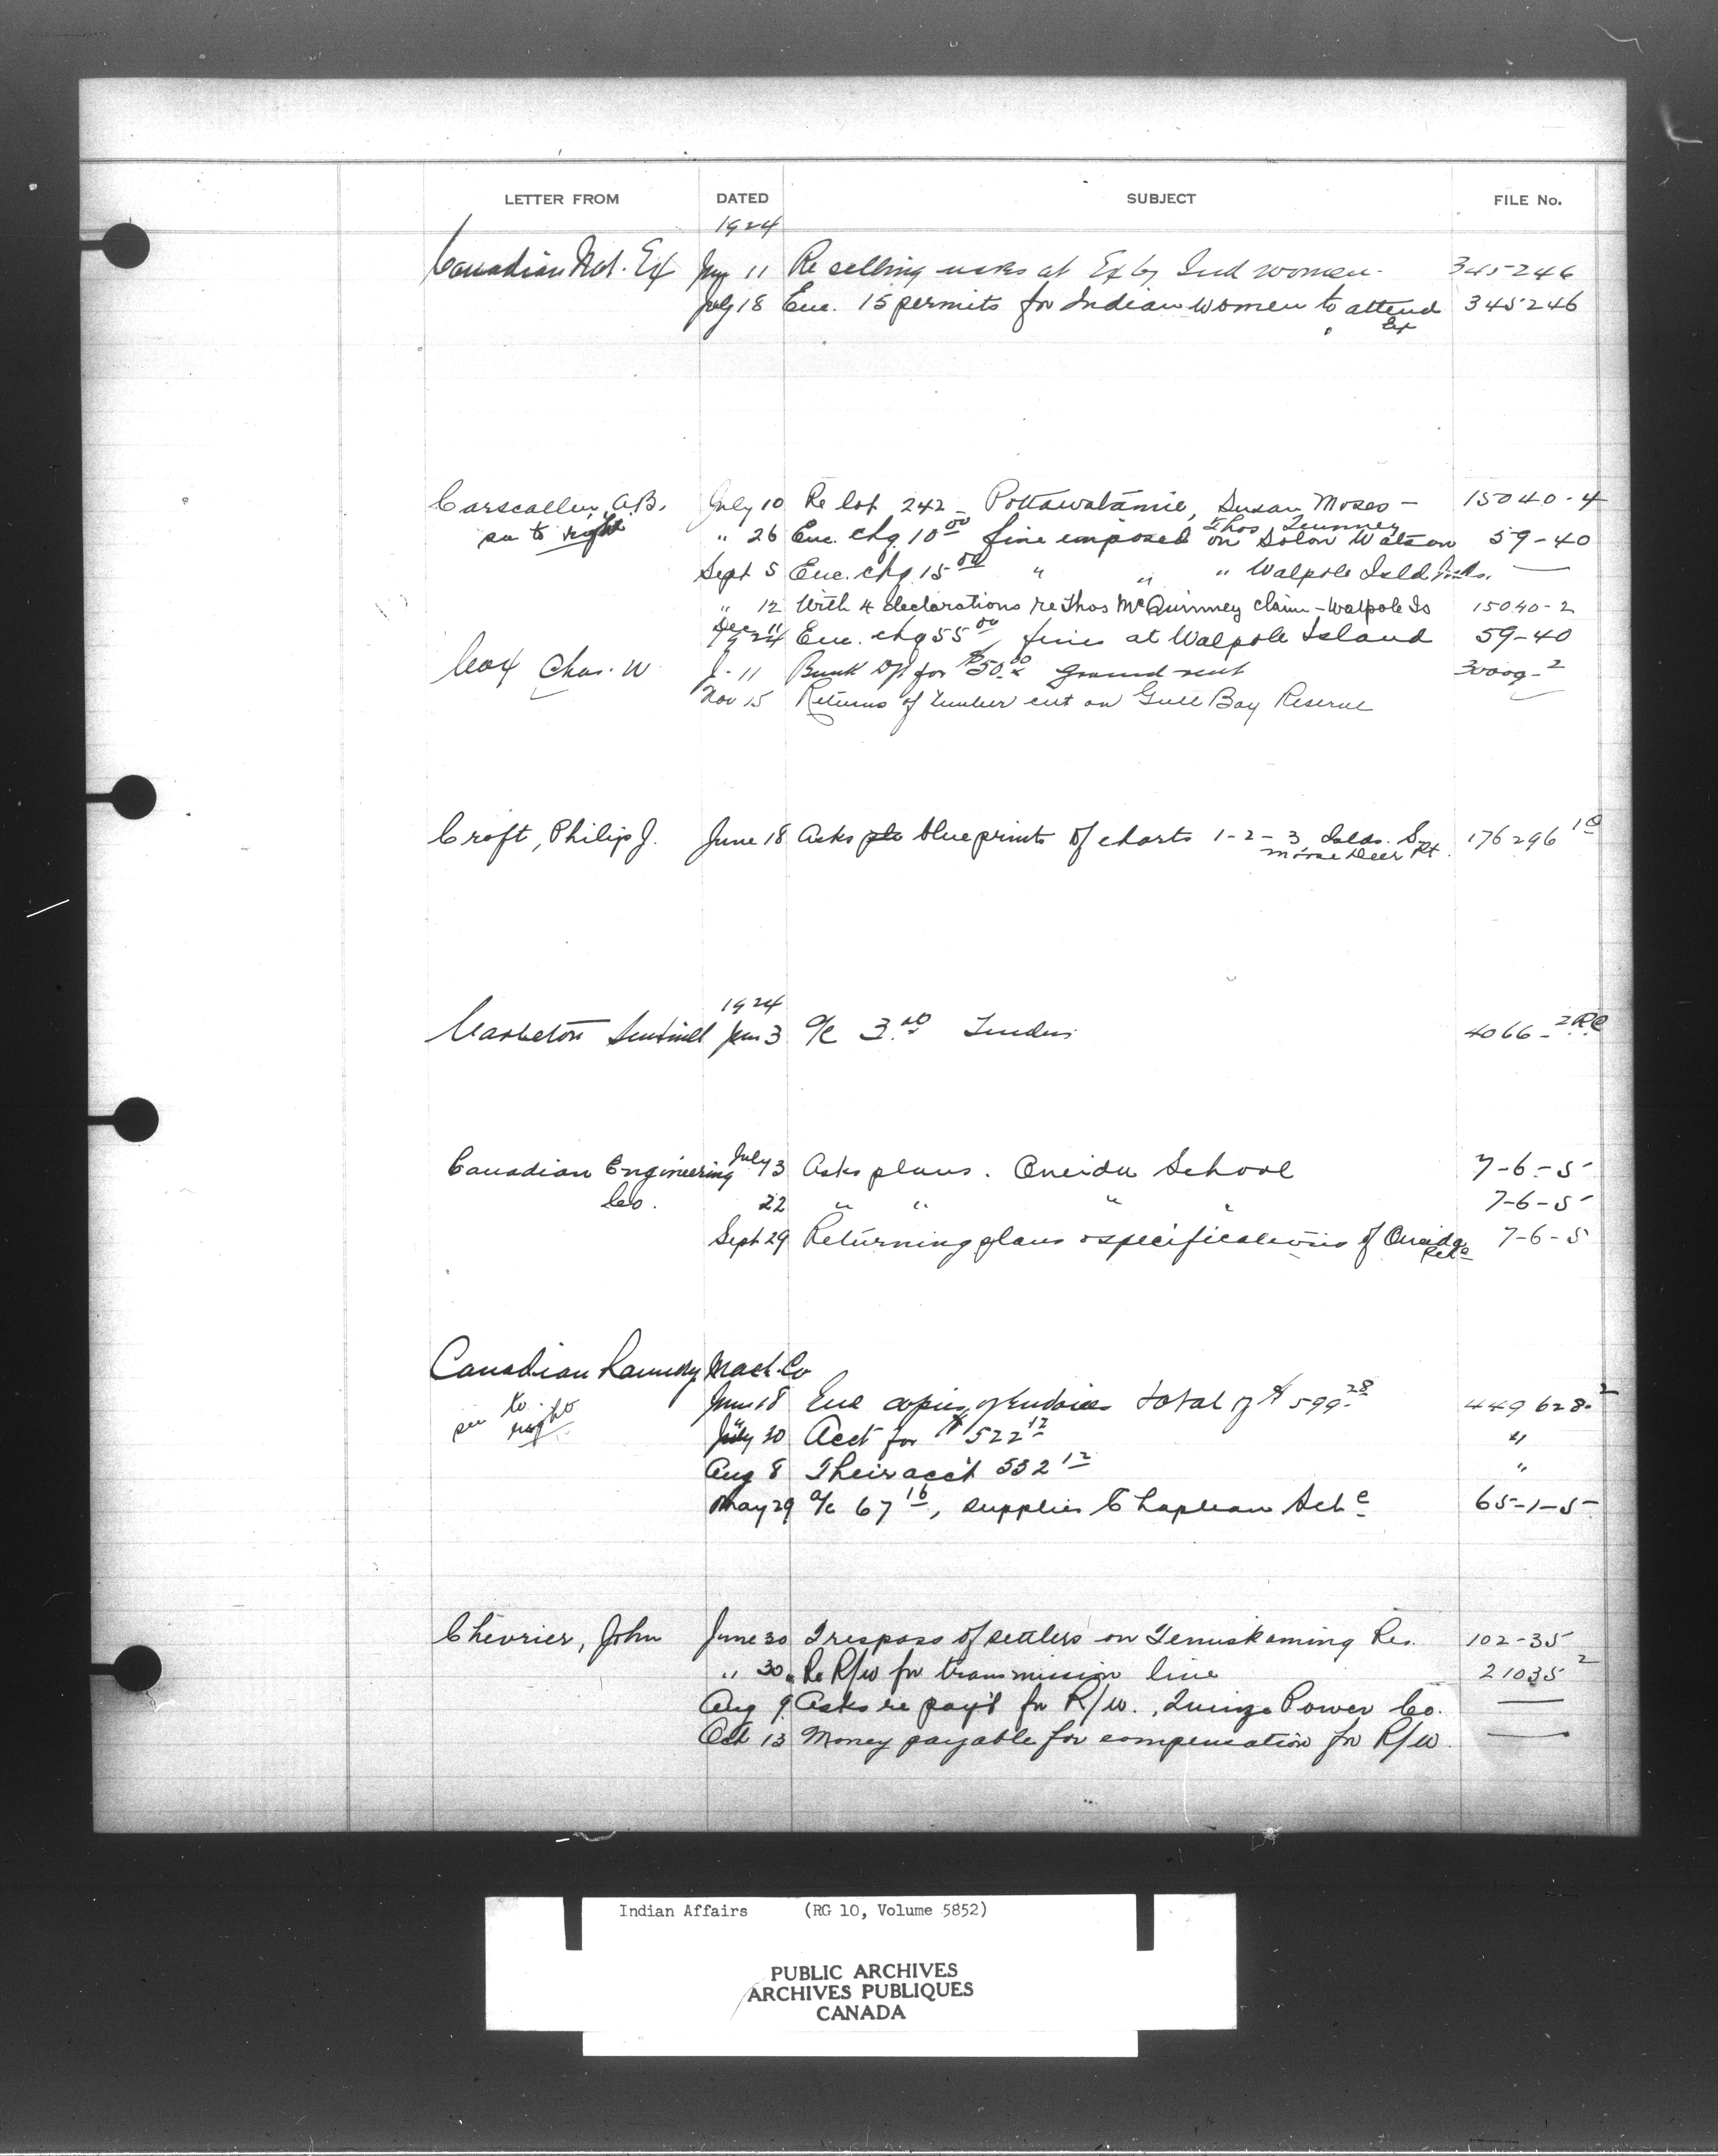 LETTER FROM DATED SUBJECT FILE No.
1924
Canadian Nat. Ex 11 Re selling at Ex by Ind women. 345246
July 18 Enc. 15 permits for Indian women to attend 345246
Ex
Carscallen, A.B. July 10 Re lot 242 - Pottawatamie, Susan Moses - 15040-4
see to right Thos
" 26 Enc. chq. 10 00 fine imposed on Solon Watson 59-40
Sept 5 Enc. chq. 15 00 " " " Walpole Isld Inds. —
" 12 With 4 declarations re Thos McQuinney claim - Walpole Is 15040-2
Dec 11
1924 Enc. chq 55 00 fines at Walpole Island 59-40
Cox Chas. W J- 11 Bank Dft for $50.00 ground rent 30009-2
Nov 15 Returns of timber cut on Gull Bay Reserve
Croft, Philip J. June 18 Asks blueprints of charts 1-2-3 Islds. S. 176296 10
Moose Deer Pt.
1924
Carleton Sentinel Jun 3 a/c 3.00 Tenders 4066-2
Canadian Engineering July 3 Asks plans. Oneida School 7-6-5
Co. 22 " " " " 7-6-5
Sept 29 Returning plans & specifications of Oneida 7-6-5
Canadian Laundry Mach. Co
see to right June 18 Enc copies of Invoices total of $599.28 449628-2
" 30 Acct for $522 12 "
Aug 8 Their acc't 532 12 "
May 29 a/c 67 16, supplies Chapleau Sch 65-1-5
Chevrier, John June 30 Trespass of settlers on Temiskaming Res. 102-35
" 30 Re R/W for transmission line 21035 2
Aug 9 Asks re pay't for R/W., Quinze Power Co. —
Oct 13 Money payable for compensation for R/W. —
Indian Affairs (RG 10, Volume 5852)
PUBLIC ARCHIVES
ARCHIVES PUBLIQUES
CANADA